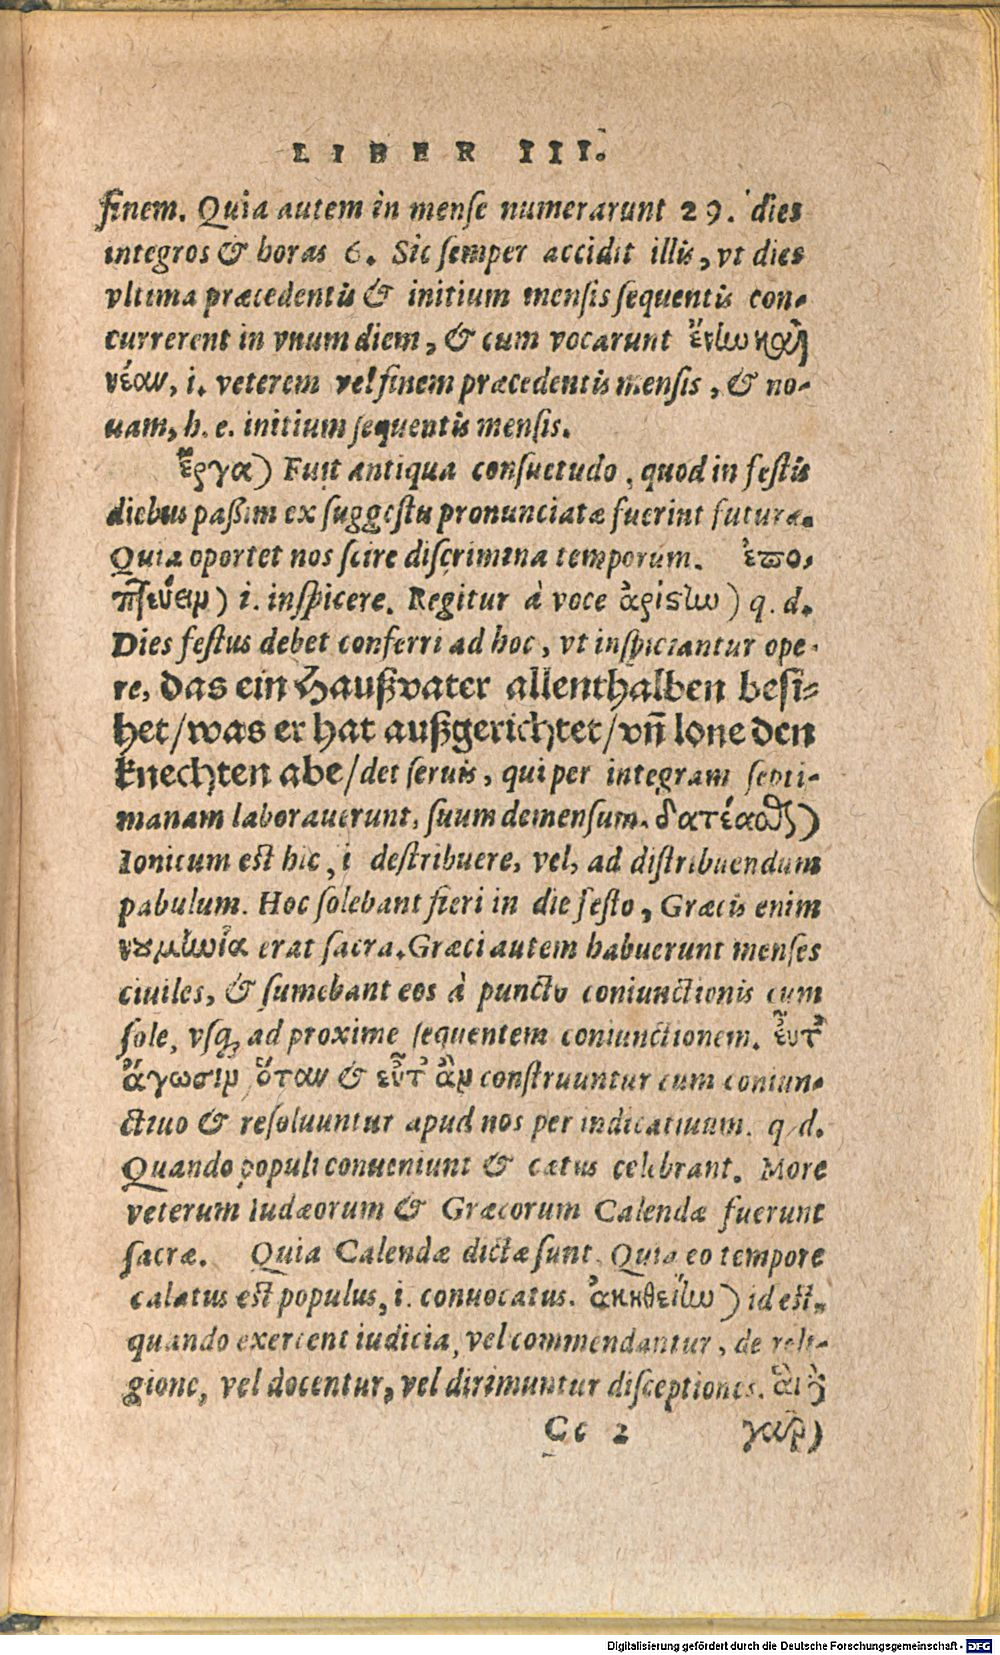 LIBER III.
finem. Quia autem in mense numerarunt 29. dies
integros & horas 6. Sic semper accidit illis, vt dies
vltima præcedentis & initium mensis sequentis con-
currerent in vnum diem, & cum vocarunt ἕνην καὶ
νέαν, i. veterem vel finem præcedentis mensis, & no-
uam, h. e. initium sequentis mensis.
ἔργα) Fuit antiqua consuetudo, quod in festis
diebus paßim ex suggestu pronunciatæ fuerint futuræ.
Quia oportet nos scire discrimina temporum. ἐπο-
πτεύειν) i. inspicere. Regitur à voce ἀρίστην) q. d.
Dies festus debet conferri ad hoc, vt inspiciantur ope-
re, das ein Haußvater allenthalben besi-
het/was er hat außgerichtet/vñ lone den
knechten abe/det seruis, qui per integram septi-
manam laborauerunt, suum demensum. δατέασθαι)
Ionicum est hic, i destribuere, vel, ad distribuendum
pabulum. Hoc solebant fieri in die festo, Græcis enim
νουμηνία erat sacra. Græci autem habuerunt menses
ciuiles, & sumebant eos à puncto coniunctionis cum
sole, vsq; ad proxime sequentem coniunctionem. εὖτ'
ἄγωσιν ὅταν & εὖτ' ἂν construuntur cum coniun-
ctiuo & resoluuntur apud nos per indicatiuum. q d.
Quando populi conueniunt & cætus celebrant. More
veterum Iudæorum & Græcorum Calendæ fuerunt
sacræ. Quia Calendæ dictæ sunt. Quia eo tempore
calatus est populus, i. conuocatus. ἀληθείην) id est,
quando exercent iudicia, vel commendantur, de reli-
gione, vel docentur, vel dirimuntur disceptiones.
Cc 2 γὰρ)